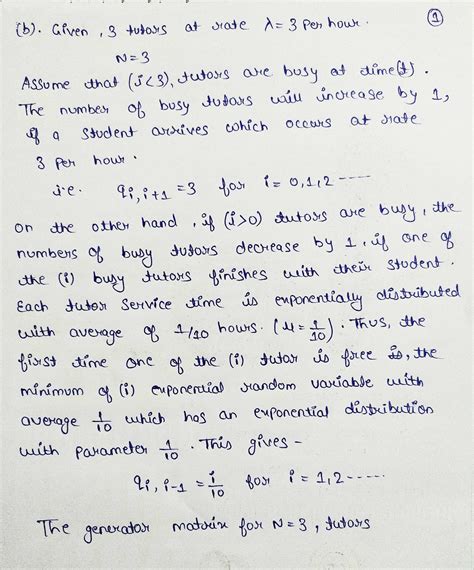 (b). Given, 3 tutors at rate λ = 3 Per hour.
①
N=3
Assume that (i<3), tutors are busy at time(t).
The number of busy tutors will increase by 1,
if a student arrives which occurs at rate
3 per hour.
i.e. qi,i+1 = 3 for i = 0,1,2 -----
On the other hand, if (i>0) tutors are busy, the
numbers of busy tutors decrease by 1, if one of
the (i) busy tutors finishes with their student.
Each tutor service time is exponentially distributed
with average of 1/10 hours. (μ = 1/10). Thus, the
first time one of the (i) tutor is free is, the
minimum of (i) exponential random variable with
average 1/10 which has an exponential distribution
with parameter 1/10. This gives -
qi,i-1 = i/10 for i = 1,2 -----
The generator matrix for N=3, tutors